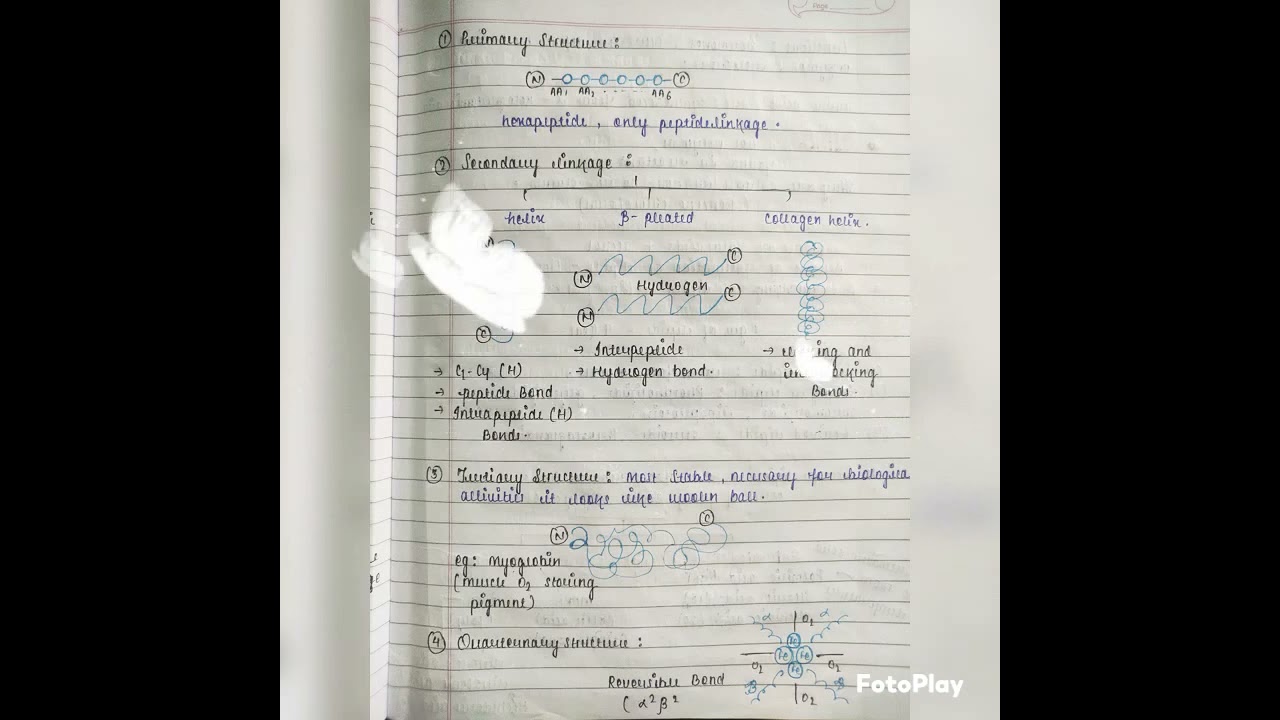 Page
① Primary Structure :
Ⓝ Ⓒ
AA1 AA2 ---- AA6
hexapeptide, only peptide linkage.
② Secondary linkage :
helix β- pleated Collagen helix.
Ⓒ
Ⓝ Hydrogen
Ⓒ
Ⓝ
Ⓒ
→ Interpeptide
→ Hydrogen bond.
→ and
Bonds.
→ (H)
→ peptide Bond
→ Intrapeptide (H)
Bonds.
③ Tertiary Structure : most stable, necessary for biological
activities it looks like woolen ball.
Ⓝ Ⓒ
eg: myoglobin
(muscle O2 storing
pigment)
④ Quaternary structure :
α O2 α
Fe
Fe Fe
O2 O2
Fe
β O2 β
Reversible Bond
( α2 β2
FotoPlay